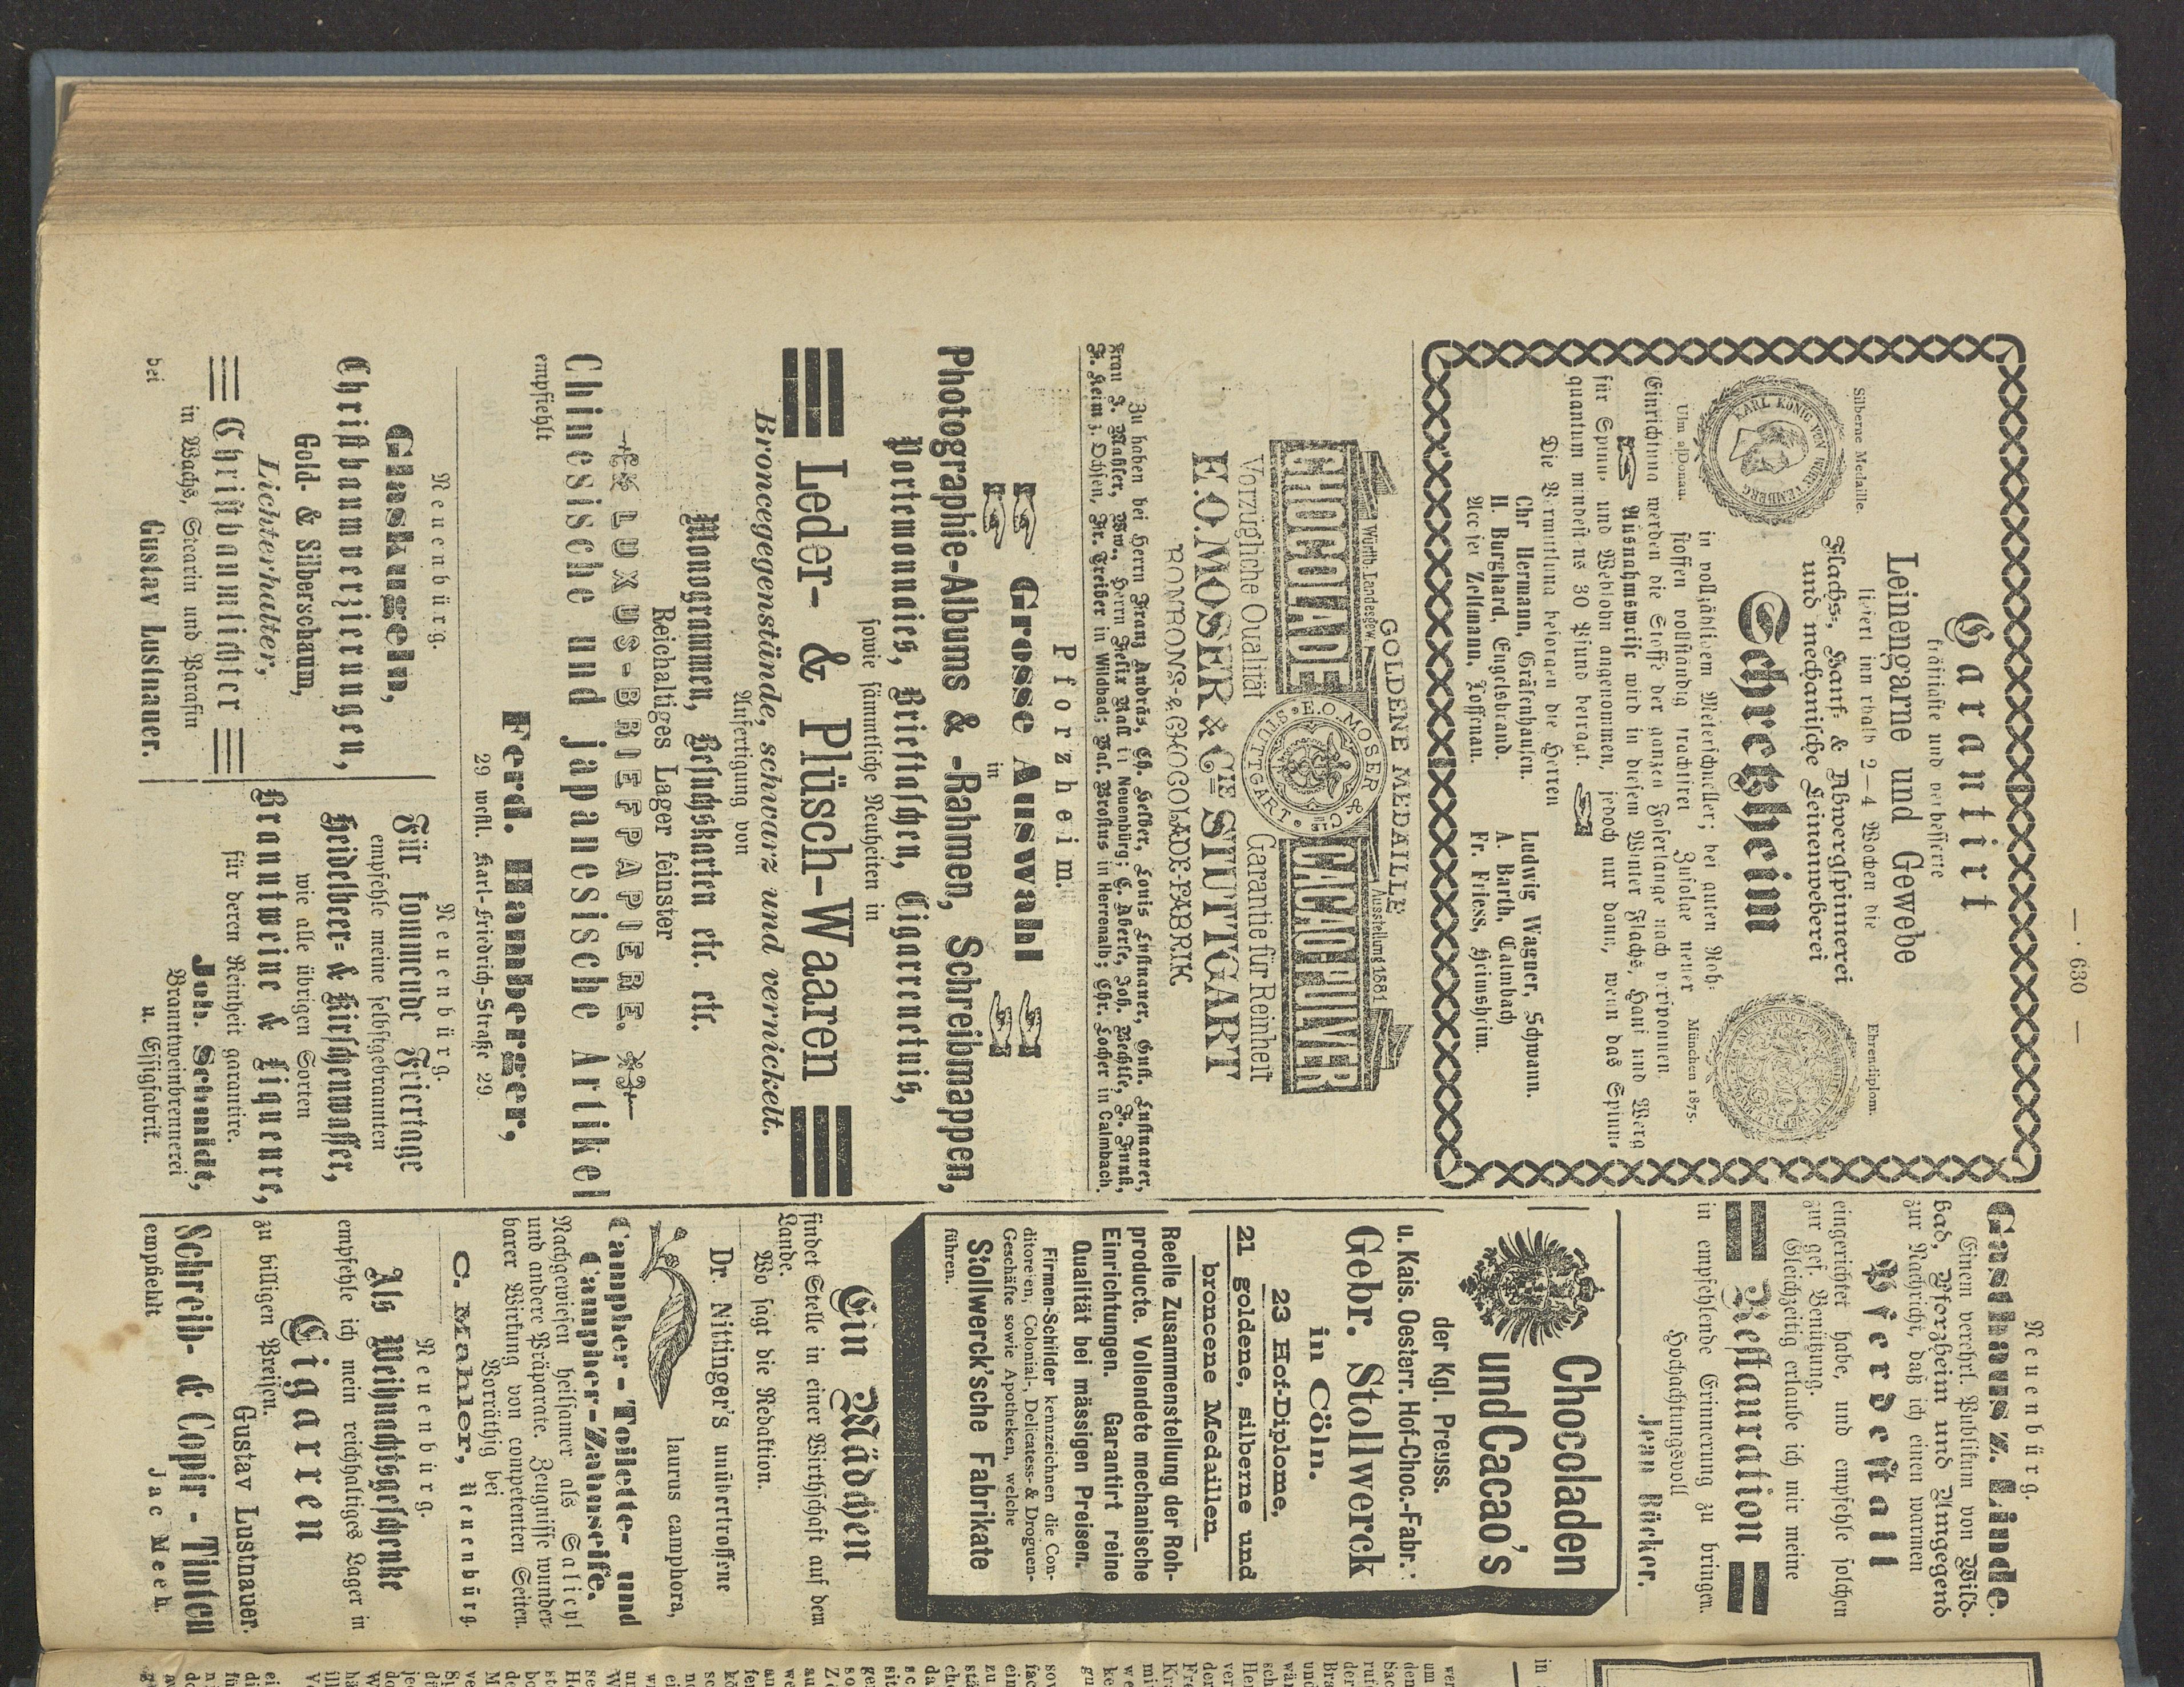 — 630 —
Garantirt
kräftigste und verbesserte
Leinengarne und Gewebe
liefert innerhalb 2—4 Wochen die
Silberne Medaille.
Ehrendiplom.
Flachs-, Hanf- & Abwergspinnerei
und mechanische Leinenweberei
Schretzheim
KARL KÖNIG VON WÜRTTEMBERG
Ulm a/Donau.
München 1875.
in vollzähligem Meterschneller; bei guten Roh-
stoffen vollständig frachtfrei Zufolge neuer
Einrichtung werden die Stoffe der ganzen Faserlänge nach versponnen.
Ausnahmsweise wird in diesem Winter Flachs, Hanf und Werg
für Spinn- und Weblohn angenommen, jedoch nur dann, wenn das Spinn-
quantum mindestens 30 Pfund beträgt.
Die Vermittlung besorgen die Herren
Chr Hermann, Gräfenhausen.
Ludwig Wagner, Schwann.
H. Burghard, Engelsbrand.
A. Barth, Calmbach
Acciser Zeltmann, Loffenau.
Fr. Friess, Heimsheim.
GOLDENE MEDAILLE
Württb. Landesgew.
Ausstellung 1881
CHOCOLADE
E.O. MOSER & Cie STUTTGART
CACAOPULVER
Vorzügliche Qualität
Garantie für Reinheit
E.O. MOSER & CIE STUTTGART
BONBONS- & CHOCOLADE-FABRIK
Zu haben bei Herrn Franz Andräs, Ch. Helber, Louis Lustnauer, Gust. Lustnauer,
Frau J. Mahler, Ww., Herrn Felix Rall in Neuenbürg; C. Aberle, Joh. Bechtle, J. Funk,
F. Keim z. Ochsen, Fr. Treiber in Wildbad; Val. Brosius in Herrenalb; Chr. Locher in Calmbach.
Pforzheim.
Grosse Auswahl
in
Photographie-Albums & -Rahmen, Schreibmappen,
Portemonnaies, Brieftaschen, Cigarrenetuis,
sowie sämmtliche Neuheiten in
Leder- & Plüsch-Waaren
Broncegegenstände, schwarz und vernickelt.
Anfertigung von
Monogrammen, Besuchskarten etc. etc.
Reichaltiges Lager feinster
LUXUS-BRIEFPAPIERE.
Chinesische und japanesische Artikel
empfiehlt
Ferd. Hamberger,
29 westl. Karl-Friedrich-Straße 29.
Neuenbürg.
Glaskugeln,
Christbaumverzierungen,
Gold- & Silberschaum,
Lichterhalter,
Christbaumlichter
in Wachs, Stearin und Parafin
bei
Gustav Lustnauer.
Neuenbürg.
Für kommende Feiertage
empfehle meine selbstgebrannten
Heidelbeer- & Kirschenwasser,
wie alle übrigen Sorten
Branntweine & Liqueure,
für deren Reinheit garantire.
Joh. Schmidt,
Branntweinbrennerei
u. Essigfabrik.
Neuenbürg.
Gasthaus z. Linde.
Einem verehrl. Publikum von Wild-
bad, Pforzheim und Umgegend
zur Nachricht, daß ich einen warmen
Pferdestall
eingerichtet habe, und empfehle solchen
zur gef. Benützung.
Gleichzeitig erlaube ich mir meine
Restauration
in empfehlende Erinnerung zu bringen.
Hochachtungsvoll
Jean Rücker.
Chocoladen
und Cacao's
der Kgl. Preuss.
u. Kais. Oesterr. Hof-Choc.-Fabr.:
Gebr. Stollwerck
in Cöln.
23 Hof-Diplome,
21 goldene, silberne und
broncene Medaillen.
Reelle Zusammenstellung der Roh-
producte. Vollendete mechanische
Einrichtungen. Garantirt reine
Qualität bei mässigen Preisen.
Firmen-Schilder kennzeichnen die Con-
ditoreien, Colonial-, Delicatess- & Droguen-
Geschäfte sowie Apotheken, welche
Stollwerck'sche Fabrikate
führen.
Ein Mädchen
findet Stelle in einer Wirthschaft auf dem
Lande.
Wo sagt die Redaktion.
Dr. Nittinger's unübertroffene
laurus camphora,
Campher-Toilette- und
Campher-Zahnseife.
Nachgewiesen heilsamer als Salicyl
und andere Präparate. Zeugnisse wunder-
barer Wirkung von competenten Seiten.
Vorräthig bei
C. Mahler, Neuenbürg.
Neuenbürg.
Als Weihnachtsgeschenke
empfehle ich mein reichhaltiges Lager in
Cigarren
zu billigen Preisen.
Gustav Lustnauer.
Schreib- & Copir-Tinten
empfiehlt
Jac Meeh.